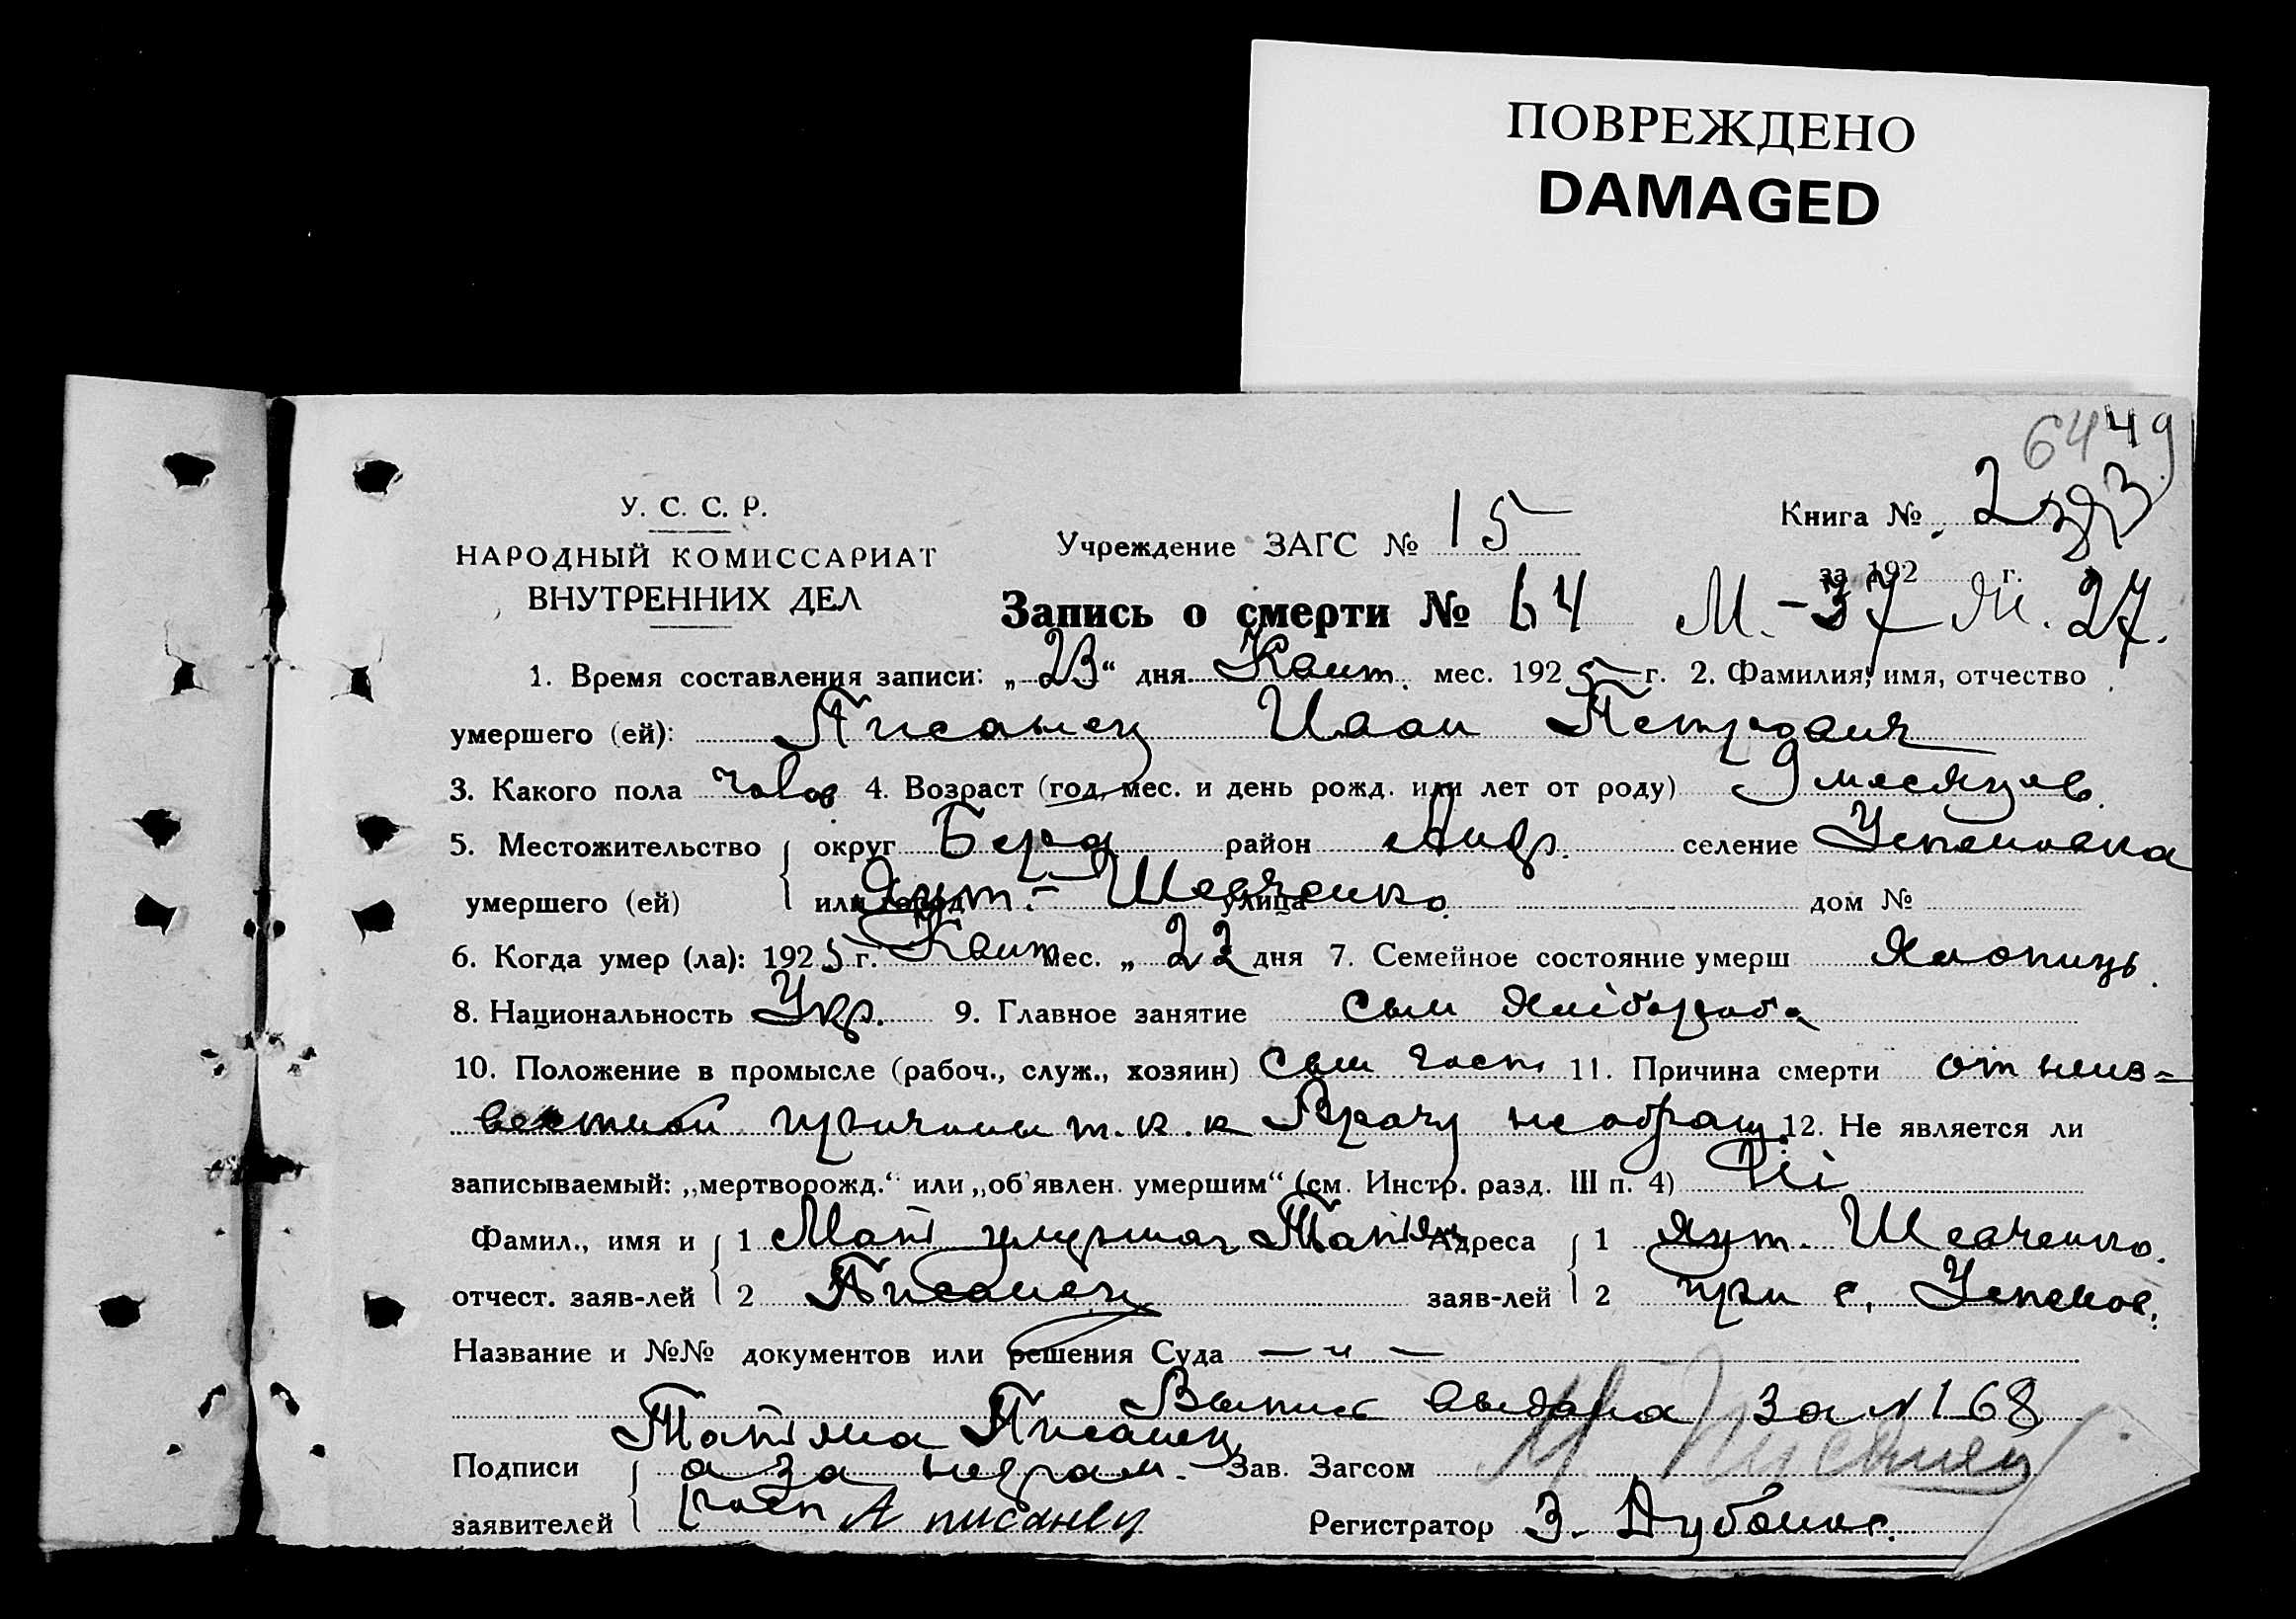 ПОВРЕЖДЕНО
DAMAGED
6449
У. С. С. Р.
НАРОДНЫЙ КОМИССАРИАТ
ВНУТРЕННИХ ДЕЛ
Учреждение ЗАГС № 15
Книга № 2
за 192 г.
Запись о смерти № 64 М. - 37 27.
1. Время составления записи: „23“ дня Квит. мес. 1925 г. 2. Фамилия, имя, отчество
умершего (ей): Писанец Иван Петрович
3. Какого пола чолов 4. Возраст (год, мес. и день рожд. или лет от роду) 9 месяцев.
5. Местожительство округ Берд район Андр. селение Успеновка
умершего (ей) или город хут. - Шевченко улица дом №
6. Когда умер (ла): 1925 г. Квит мес. „22 дня 7. Семейное состояние умерш Хлопиць.
8. Национальность Укр. 9. Главное занятие Сын хлібороба
10. Положение в промысле (рабоч., служ., хозяин) Сын 11. Причина смерти от неиз=
вестной причины т.к. к Врачу не обращ. 12. Не является ли
записываемый: „мертворожд.“ или „об'явлен. умершим“ (см. Инстр. разд. III п. 4) Ні
Фамил., имя и 1 Маті умершаг Татіян Адреса 1 хут. Шевченко.
отчест. заяв-лей 2 Писанец заяв-лей 2 при с. Успенов.
Название и №№ документов или решения Суда — „ —
Выпис выдана за № 168
Татіяна Писанец
Подписи а за неграм. Зав. Загсом Писанец
заявителей расп А писанец Регистратор З. Дубо